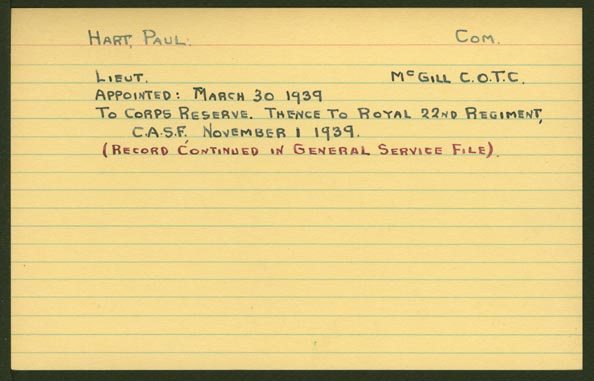 HART, PAUL. COM.
LIEUT. McGILL C.O.T.C.
APPOINTED: MARCH 30 1939
TO CORPS RESERVE. THENCE TO ROYAL 22ND REGIMENT,
C.A.S.F. NOVEMBER 1 1939.
(RECORD CONTINUED IN GENERAL SERVICE FILE).